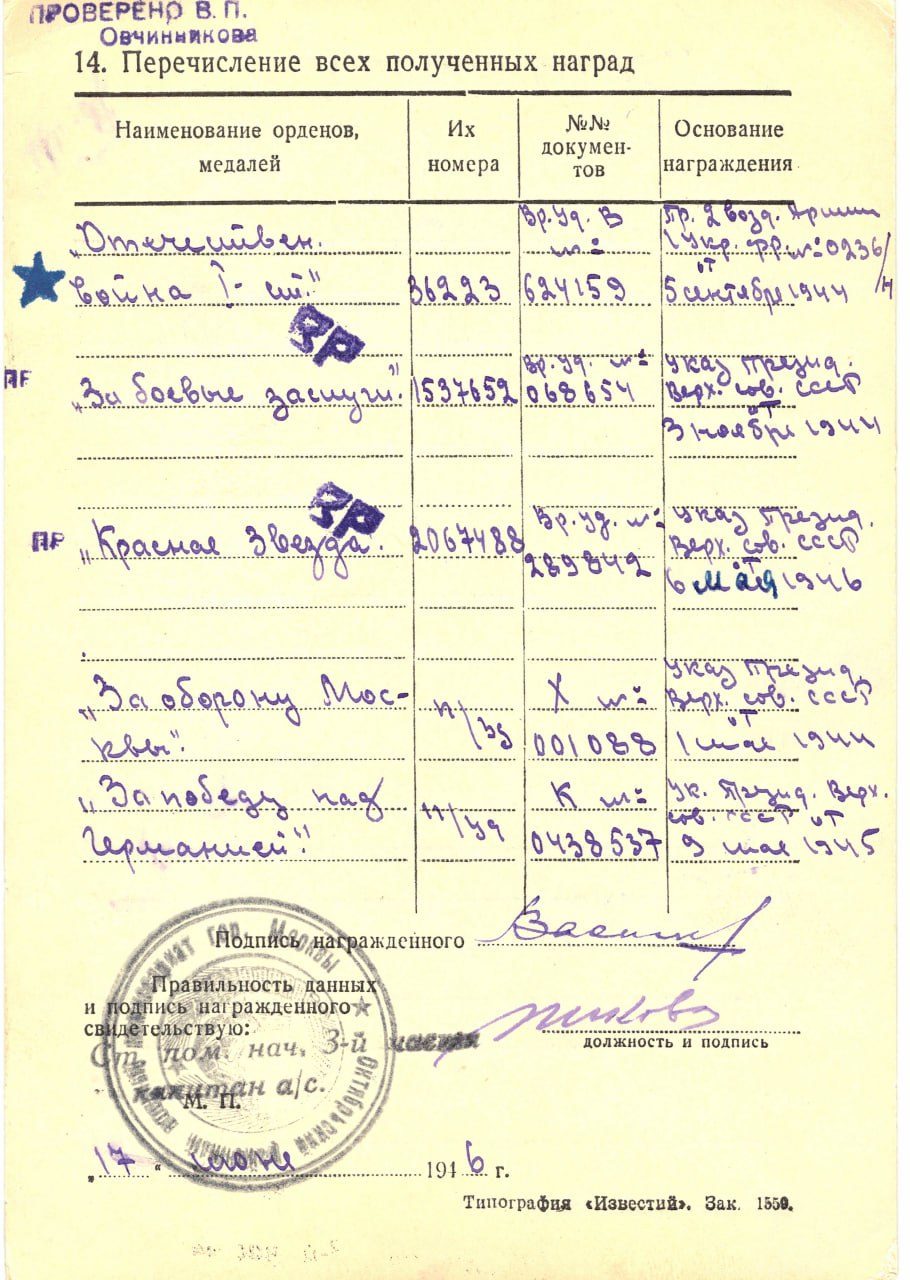 ПРОВЕРЕНО В. П.
Овчинникова
14. Перечисление всех полученных наград
Наименование орденов, медалей
Их номера
№№ документов
Основание награждения
„Отечествен. война I-ой."
36223
Вр. Уд. В № 624159
Пр. 2 возд. Армии 1 Укр. фр. №0236/н от 5 сентября 1944
ВР
ПР
„За боевые заслуги."
1537652
Вр. Уд. № 068654
Указ Презид. Верх. сов. СССР от 3 ноября 1944
ВР
ПР
„Красная Звезда.
2067488
Вр. Уд. № 289842
Указ Презид. Верх. сов. СССР от 6 мая 1946
„За оборону Москвы".
Х № 001088
Указ Презид. Верх. сов. СССР от 1 мая 1944
„За победу над Германией"
К № 0438537
Ук. Презид. Верх. сов. СССР от 9 мая 1945
Подпись награжденного
Правильность данных
и подпись награжденного
свидетельствую:
Ст. пом. нач. 3-й части
капитан а/с.
должность и подпись
М. П.
гор. Москвы
Октябрьский районный
„17" июня 1946 г.
Типография «Известий». Зак. 1550.